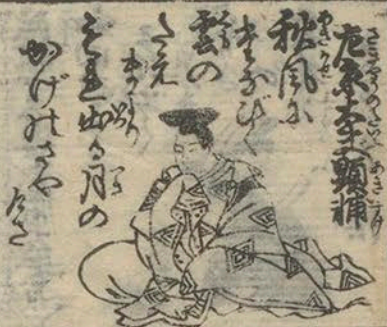 左京大夫顯輔
秋風に
たなびく
雲の
たえ
まより
もれ出る月の
かげのさや
けさ